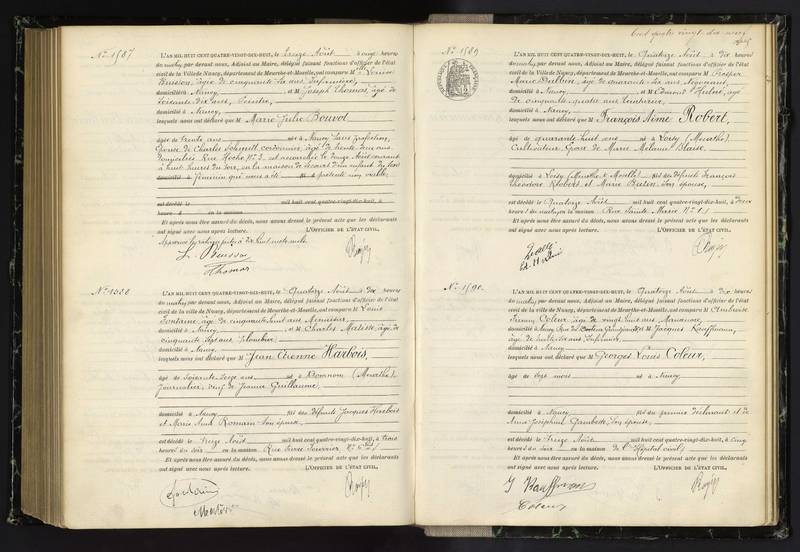 N° 1587
L'AN MIL HUIT CENT QUATRE-VINGT-DIX-HUIT, le Treize Août à onze heures
du matin, par devant nous, Adjoint au Maire, délégué faisant fonctions d'officier de l'état
civil de la Ville de Nancy, département de Meurthe-et-Moselle, ont comparu M Louise
Buisson, âgée de cinquante six ans, Infirmière,
domiciliée à Nancy et M Joseph Thomas, âgé de
soixante dix sept, Peintre,
domicilié à Nancy
lesquels nous ont déclaré que M Marie Julie Bouvot
âgée de trente ans née à Nancy sans profession,
Épouse de Charles Schmitt cordonnier, âgé de trente deux ans
domiciliés Rue Hoche N° 3, est accouchée le douze Août courant
à huit heures du soir, en la maison de secours d'un enfant du sexe
féminin qui nous a été présenté non viable
est décédé le mil huit cent quatre-vingt-dix-huit, à
heure en la maison
Et après nous être assuré du décès, nous avons dressé le présent acte que les déclarants
ont signé avec nous après lecture. L'OFFICIER DE L'ÉTAT CIVIL,
L. Buisson
Thomas
N° 1588
L'AN MIL HUIT CENT QUATRE-VINGT-DIX-HUIT, le Quatorze Août à dix heures
du matin, par devant nous, Adjoint au Maire, délégué faisant fonctions d'officier de l'état
civil de la Ville de Nancy, département de Meurthe-et-Moselle, ont comparu M Louis
Fontaine, âgé de cinquante huit ans, Menuisier,
domicilié à Nancy et M Charles Matisse, âgé de
cinquante sept ans, Plombier,
domicilié à Nancy
lesquels nous ont déclaré que M Jean Etienne Harbois,
âgé de soixante seize ans né à Domnom (Meurthe),
journalier, veuf de Jeanne Guillaume,
domicilié à Nancy fils des défunts Jacques Harbois
et Marie Anne Romain son épouse,
est décédé le Treize Août mil huit cent quatre-vingt-dix-huit, à trois
heures du soir en la maison Rue
Et après nous être assuré du décès, nous avons dressé le présent acte que les déclarants
ont signé avec nous après lecture. L'OFFICIER DE L'ÉTAT CIVIL,
Cent quatre vingt dix
N° 1589
L'AN MIL HUIT CENT QUATRE-VINGT-DIX-HUIT, le Quatorze Août à dix heures
du matin, par devant nous, Adjoint au Maire, délégué faisant fonctions d'officier de l'état
civil de la Ville de Nancy, département de Meurthe-et-Moselle, ont comparu M Prosper
Marie
domicilié à Nancy et M Edmond
de cinquante quatre ans
domicilié à Nancy
lesquels nous ont déclaré que M François Aimé Robert,
âgé de quarante huit ans né à Loisy (Meurthe),
Cultivateur, Époux de Marie Mélanie Blaise,
domicilié à Loisy (Meurthe & Moselle) fils des défunts François
Théodore Robert et Marie son épouse,
est décédé le Quatorze Août mil huit cent quatre-vingt-dix-huit, à deux
heures du matin en la maison Rue Sainte Marie N° 1
Et après nous être assuré du décès, nous avons dressé le présent acte que les déclarants
ont signé avec nous après lecture. L'OFFICIER DE L'ÉTAT CIVIL,
N° 1590
L'AN MIL HUIT CENT QUATRE-VINGT-DIX-HUIT, le Quatorze Août à dix heures
du matin, par devant nous, Adjoint au Maire, délégué faisant fonctions d'officier de l'état
civil de la Ville de Nancy, département de Meurthe-et-Moselle, ont comparu M Ambroise
Coleur, âgé de vingt huit ans, Manœuvre,
domicilié à Nancy et M Jacques Kauffmann,
âgé de ans, Infirmier,
domicilié à Nancy
lesquels nous ont déclaré que M Georges Louis Coleur,
âgé de onze mois né à Nancy
domicilié à Nancy fils du premier déclarant et de
Anna Joséphine Gambette, son épouse,
est décédé le Treize Août mil huit cent quatre-vingt-dix-huit, à cinq
heures du soir en la maison de l'Hôpital civil
Et après nous être assuré du décès, nous avons dressé le présent acte que les déclarants
ont signé avec nous après lecture. L'OFFICIER DE L'ÉTAT CIVIL,
J Kauffmann
Coleur